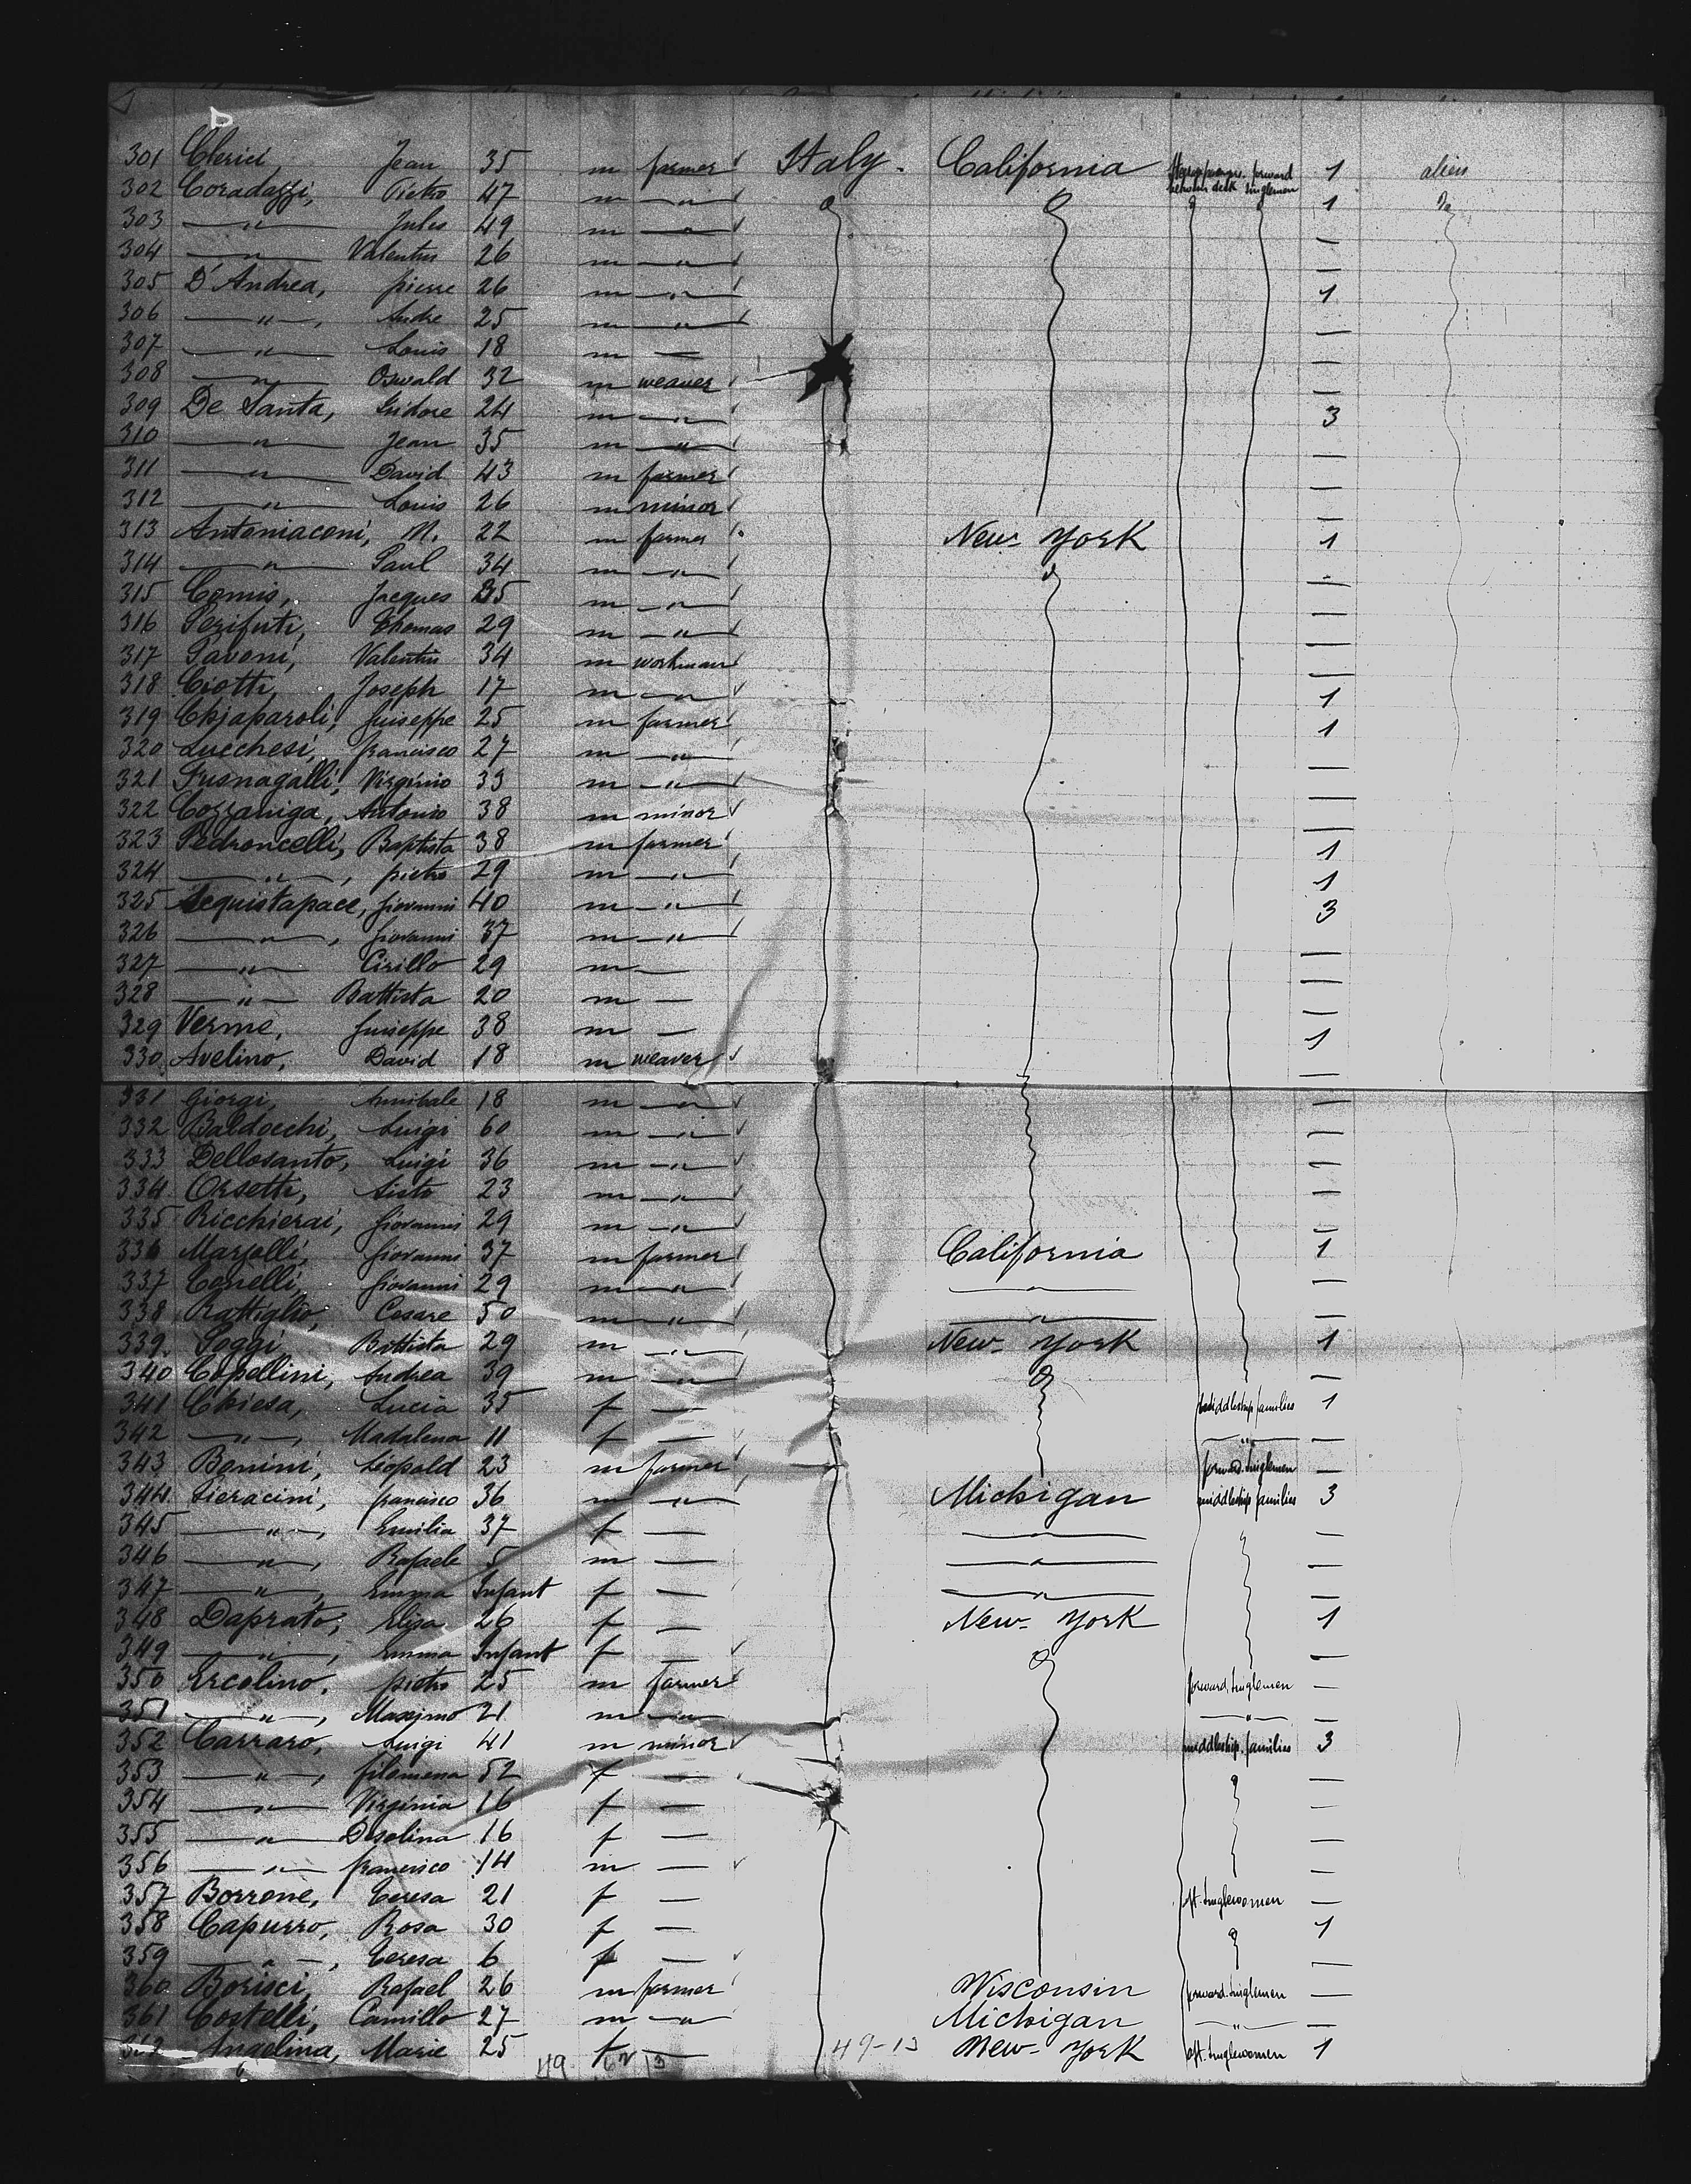 301 Clerici, Jean 35 m farmer Italy. California forward between deck singlemen 1 alien
302 Coradazzi, Pietro 47 m " 1 Do
303 " Jules 49 m " —
304 " Valentin 26 m " —
305 D'Andrea, pierre 26 m " 1
306 ", Andre 25 m " —
307 " Louis 18 m — —
308 " Oswald 32 m weaver —
309 De Santa, Isidore 24 m " 3
310 " Jean 35 m " —
311 " David 43 m farmer —
312 " Louis 26 m minor —
313 Antoniaconi, M. 22 m farmer New-York 1
314 " Paul 34 m " —
315 Comis, Jacques 35 m " —
316 Thomas 29 m " —
317 Pavoni, Valentin 34 m workman —
318 Ciotti, Joseph 17 m " 1
319 Chiaparoli, Guiseppe 25 m farmer 1
320 Lucchesi, francisco 27 m " —
321 Fusnagalli, Virginio 33 m " —
322 Cozzaniga, Antonio 38 m minor —
323 Pedroncelli, Baptista 38 m farmer 1
324 ", pietro 29 m " 1
325 Acquistapace, Giovanni 40 m " 3
326 ", Giovanni 37 m " —
327 " Cirillo 29 m — —
328 " Battista 20 m — —
329 Verme, Guiseppe 38 m — 1
330 Avelino, David 18 m weaver —
331 Giorgi, Annibale 18 m " —
332 Baldocchi, Luigi 60 m " —
333 Dellosanto, Luigi 36 m " —
334. Orsetti, Sisto 23 m " —
335 Ricchierai, Giovanni 29 m " —
336 Marzolli, Giovanni 37 m farmer California 1
337 Conelli, Giovanni 29 m " " —
338 Battiglio, Cesare 50 m " " —
339. Poggi, Battista 29 m " New-York 1
340 Capellini, Andrea 39 m " —
341 Chiesa, Lucia 35 f — middleship families 1
342 ", Madalena 11 f — " —
343 Bonini, Leopold 23 m farmer forward. singlemen —
344. Pieracini, francisco 36 m " Michigan middleship families 3
345 ", Emilia 37 f — " —
346 ", Rafaele 5 m — " —
347 ", Emma Infant f — " —
348 Daprato, Elisa 26 f — New-York 1
349 ", Emma Infant f — —
350 Ercolino, pietro 25 m farmer forward. singlemen —
351 ", Massimo 21 m " " —
352 Carraro, Luigi 41 m minor middleship. families 3
353 ", filomena 52 f — —
354 " Virginia 16 f — —
355 " Desolina 16 f — —
356 " francisco 14 m — —
357 Borrone, Teresa 21 f — aft. singlewomen —
358 Capurro, Rosa 30 f — 1
359 ", Teresa 6 f — —
360 Borisci, Rafael 26 m farmer Wisconsin forward. singlemen —
361 Costelli, Camillo 27 m " Michigan " —
362 Angelina, Marie 25 f — 49-13 New-York aft. singlewomen 1
49 62 13